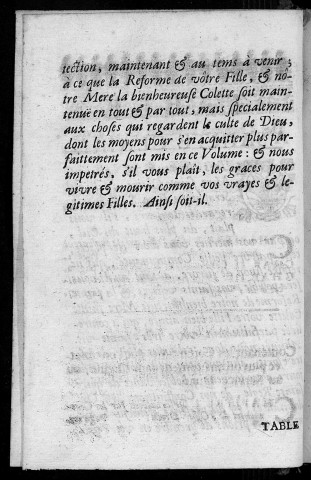 tection, maintenant & au tems à venir ;
à ce que la Reforme de vôtre Fille, & nô-
tre Mere la bienheureuse Colette soit main-
tenuë en tout & par tout, mais specialement
aux choses qui regardent le culte de Dieu,
dont les moyens pour s'en acquitter plus par-
faittement sont mis en ce Volume : & nous
impetrés, s'il vous plait, les graces pour
vivre & mourir comme vos vrayes & le-
gitimes Filles. Ainsi soit-il.
TABLE